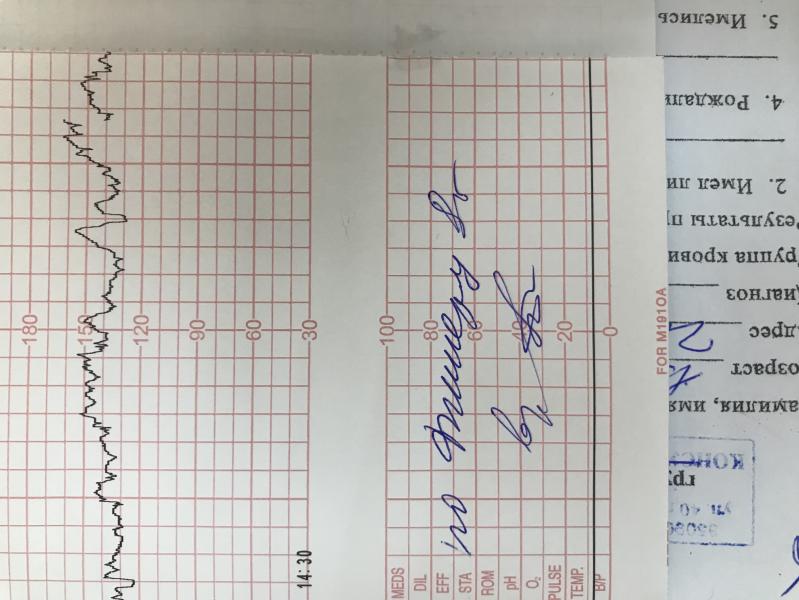 180
150
120
90
60
30
100
80
60
40
20
0
14:30
MEDS
DIL
EFF
STA
ROM
pH
O₂
PULSE
TEMP.
B/P
FOR M1910A
по Фишеру 8б
5. Имелись
4. Рождали
2. Имел ли
Результаты п
Группа крови
иагноз
дрес
озраст
амилия, имя
КОНС
гр